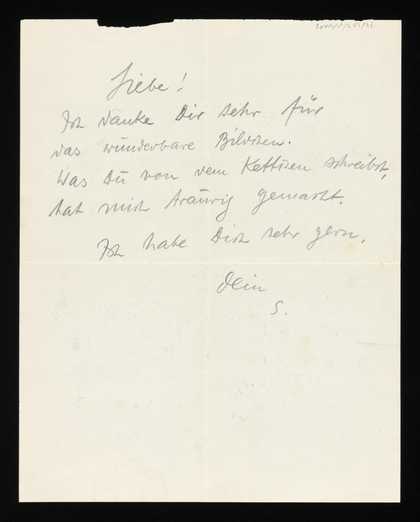 Liebe!
Ich danke Dir sehr für
das wunderbare Bildchen.
Was Du von dem Kettchen schreibst,
hat mich traurig gemacht.
Ich habe Dich sehr gern.
Dein
S.